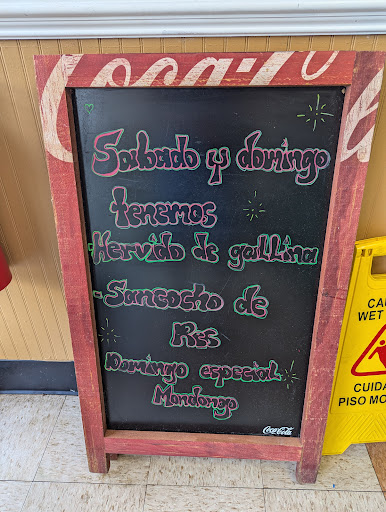 Coca-Cola
Sabado y domingo
tenemos
-Hervido de gallina
-Sancocho de
Res
Domingo especial
Mondongo
Coca-Cola
CAU
WET
CUIDA
PISO MO